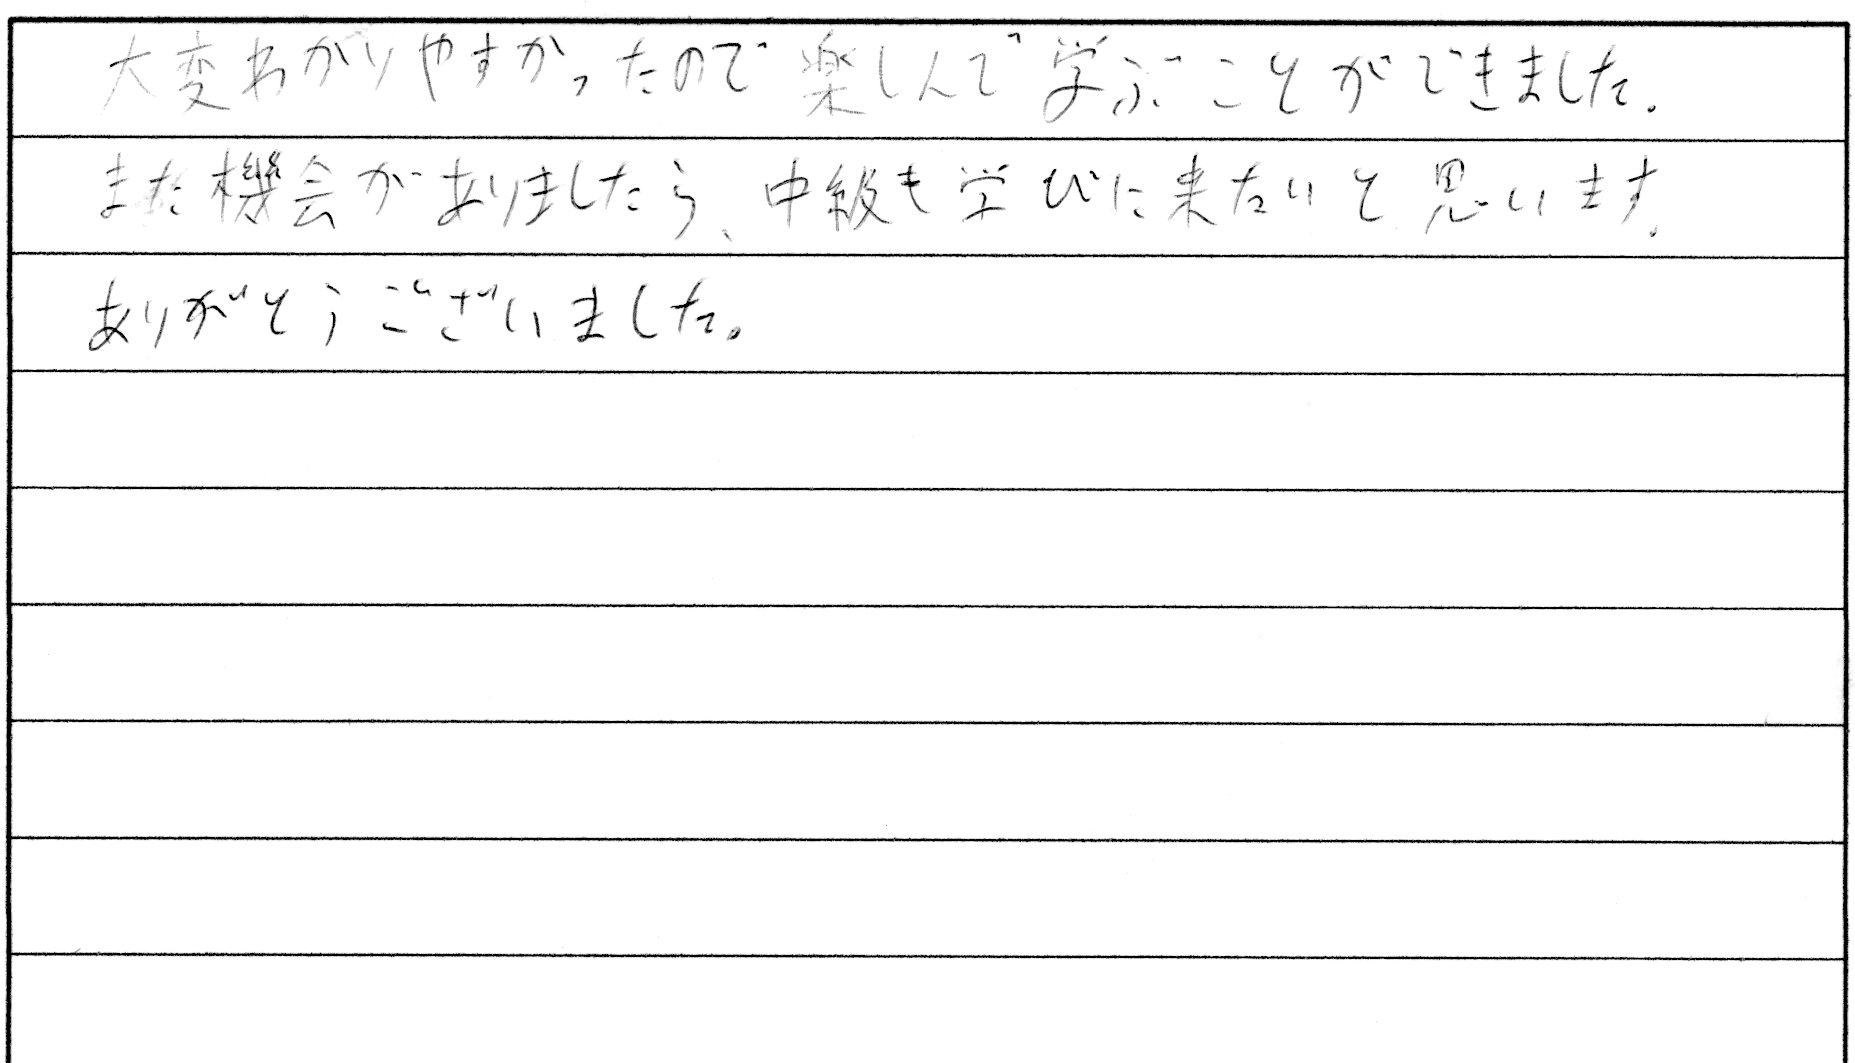 大変わかりやすかったので楽しんで学ぶことができました。
また機会がありましたら、中級も学びに来たいと思います。
ありがとうございました。